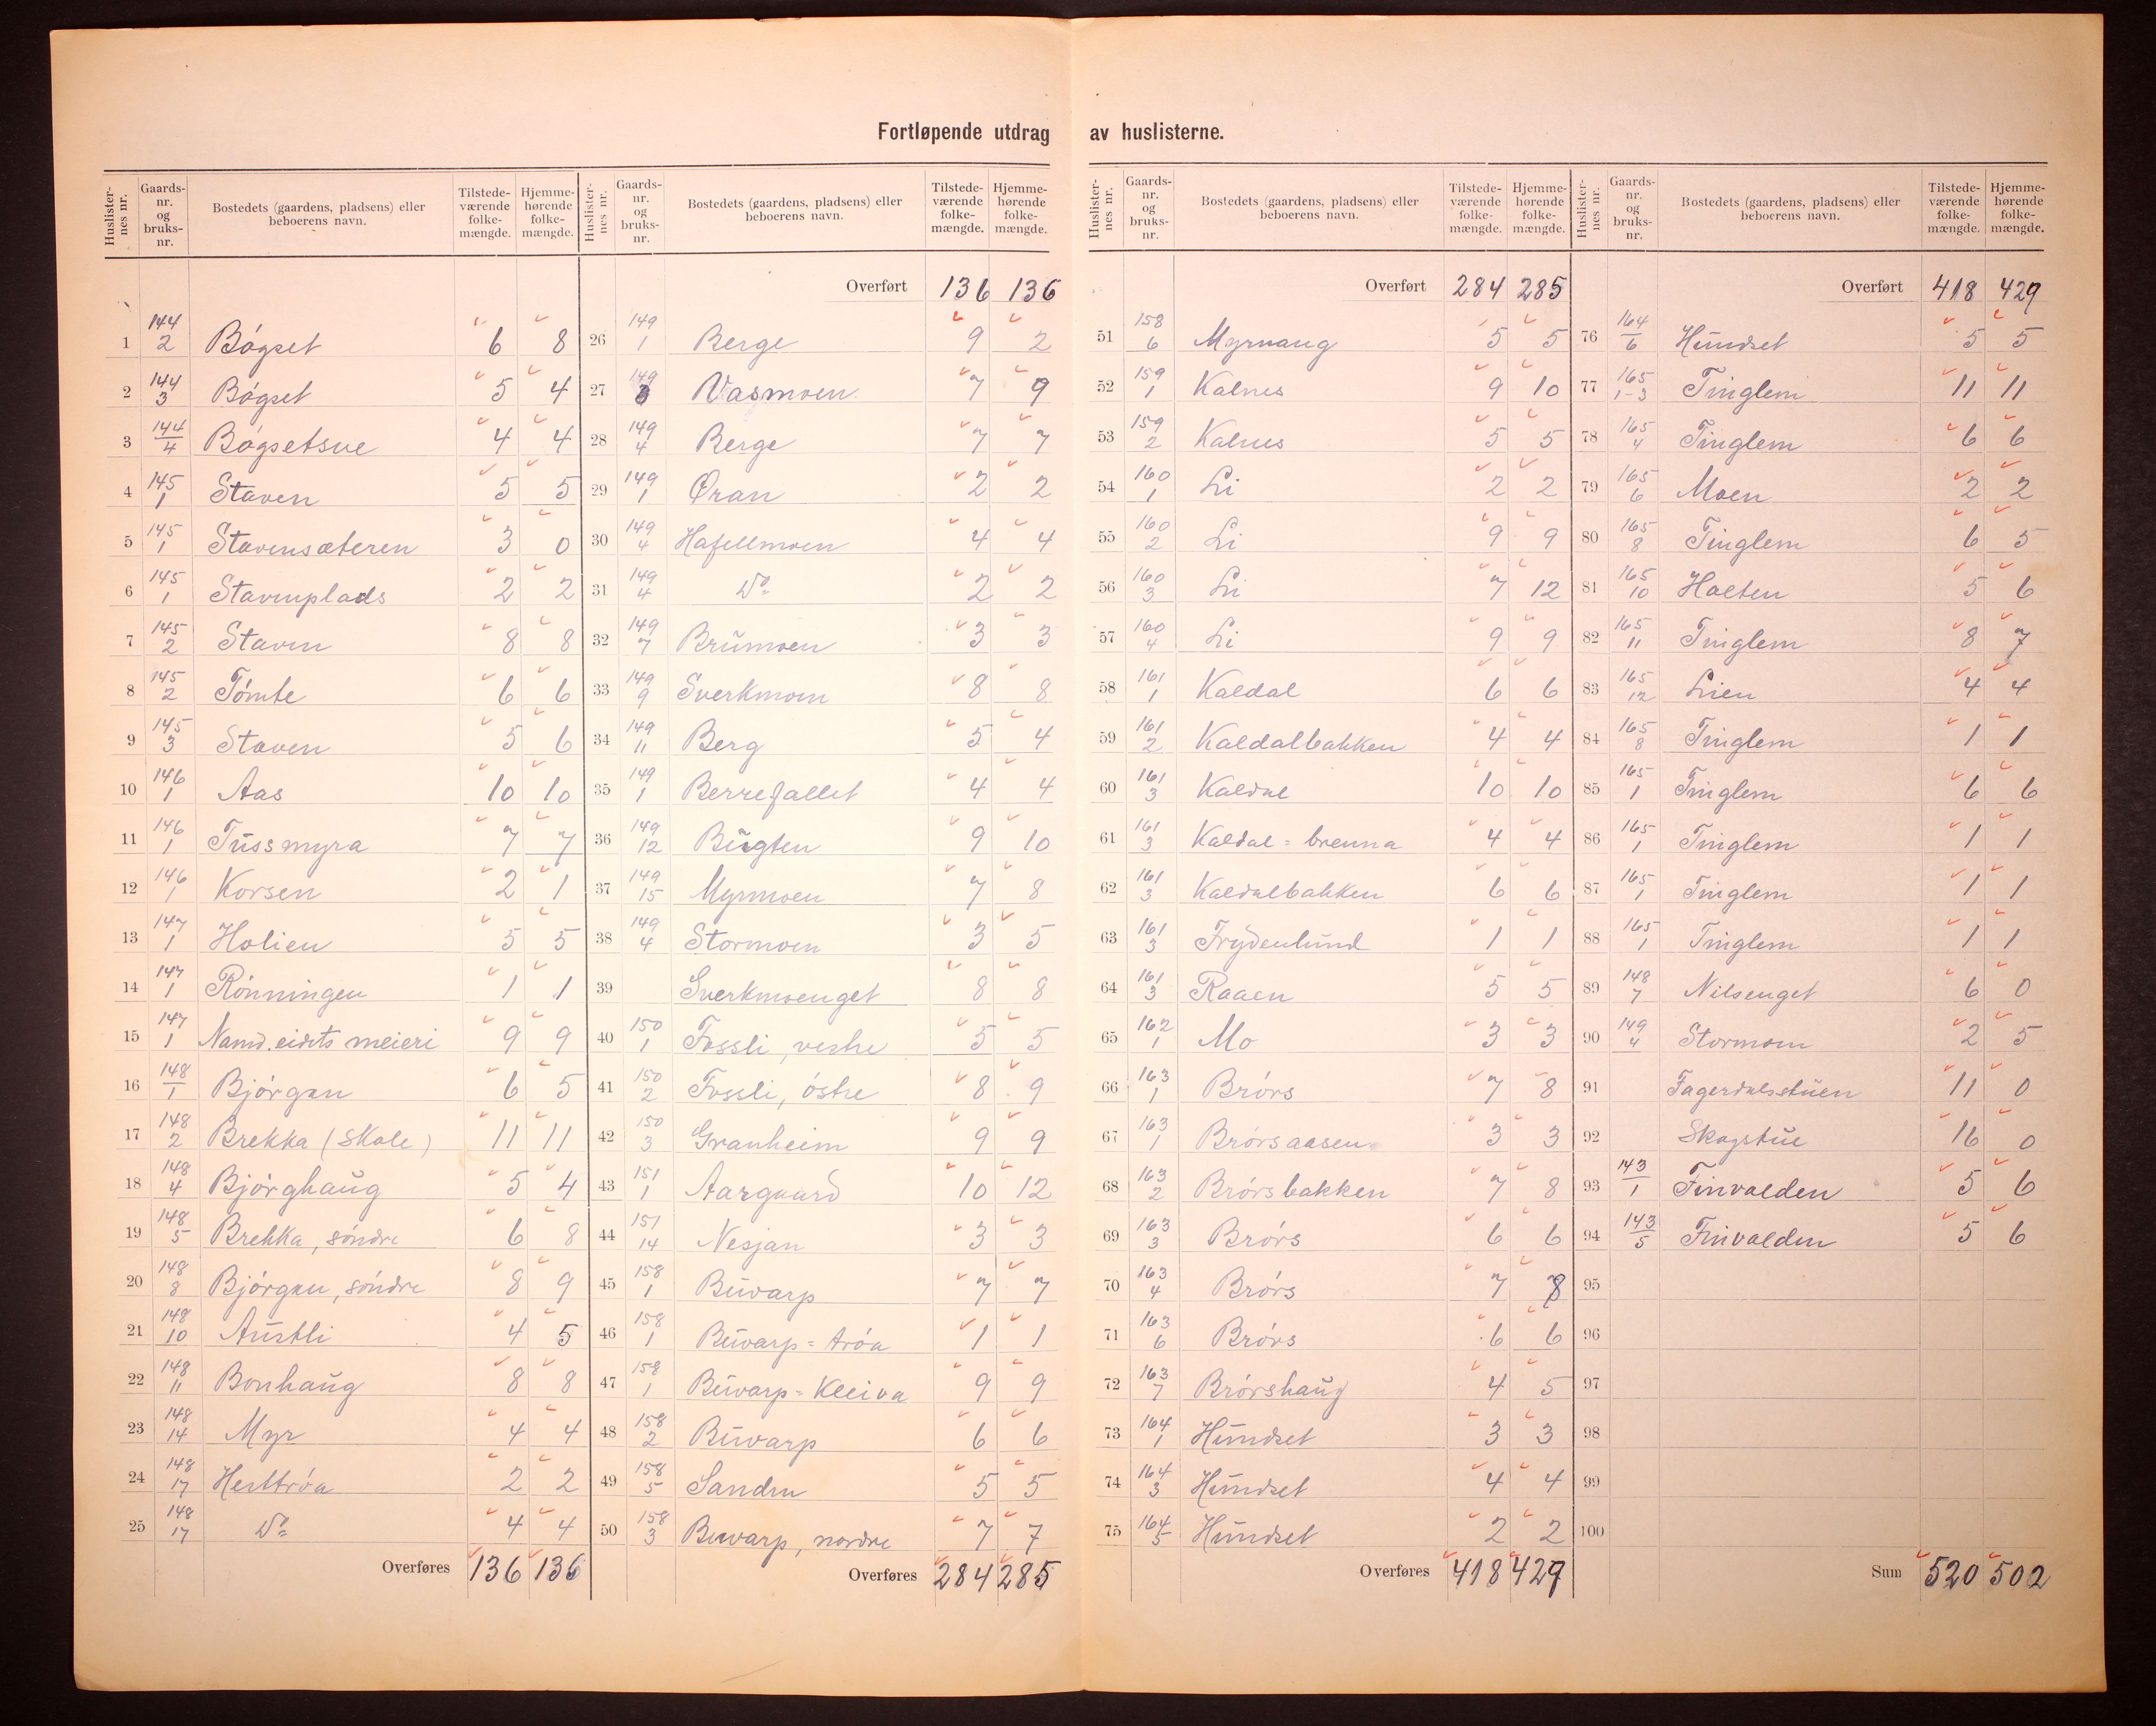 Fortløpende utdrag av huslisterne.
Huslisternes nr. Gaards-nr. og bruks-nr. Bostedets (gaardens, pladsens) eller beboerens navn. Tilstedeværende folkemængde. Hjemmehørende folkemængde.
1 144/2 Bögset 6 8
2 144/3 Bögset 5 4
3 144/4 Bögsetsve 4 4
4 145/1 Staven 5 5
5 145/1 Stavensæteren 3 0
6 145/1 Stavenplads 2 2
7 145/2 Staven 8 8
8 145/2 Tömte 6 6
9 145/3 Staven 5 6
10 146/1 Aas 10 10
11 146/1 Tussmyra 7 7
12 146/1 Korsen 2 1
13 147/1 Holien 5 5
14 147/1 Rönningen 1 1
15 147/1 Namd.eidets meieri 9 9
16 148/1 Björgan 6 5
17 148/2 Brekka (skole) 11 11
18 148/4 Björghaug 5 4
19 148/5 Brekka, söndre 6 8
20 148/8 Björgan, söndre 8 9
21 148/10 Austli 4 5
22 148/11 Bonhaug 8 8
23 148/14 Myr 4 4
24 148/17 Hesttröa 2 2
25 148/17 Do 4 4
Overføres 136 136
Huslisternes nr. Gaards-nr. og bruks-nr. Bostedets (gaardens, pladsens) eller beboerens navn. Tilstedeværende folkemængde. Hjemmehørende folkemængde.
Overført 136 136
26 149/1 Berge 9 2
27 149/3 Vasmoen 7 9
28 149/4 Berge 7 7
29 149/1 Øran 2 2
30 149/4 Hafellmoen 4 4
31 149/4 Do 2 2
32 149/7 Brumoen 3 3
33 149/9 Sverkmoen 8 8
34 149/11 Berg 5 4
35 149/1 Berrefallet 4 4
36 149/12 Bugten 9 10
37 149/15 Myrmoen 7 8
38 149/4 Stormoen 3 5
39 Sverkmoenget 8 8
40 150/1 Fossli, vestre 5 5
41 150/2 Fossli, östre 8 9
42 150/3 Granheim 9 9
43 151/1 Aargaard 10 12
44 151/14 Nesjan 3 3
45 158/1 Buvarp 7 7
46 158/1 Buvarp=tröa 1 1
47 158/1 Buvarp=Kleiva 9 9
48 158/2 Buvarp 6 6
49 158/5 Sandra 5 5
50 158/3 Buvarp, nordre 7 7
Overføres 284 285
Huslisternes nr. Gaards-nr. og bruks-nr. Bostedets (gaardens, pladsens) eller beboerens navn. Tilstedeværende folkemængde. Hjemmehørende folkemængde.
Overført 284 285
51 158/6 Myrvang 5 5
52 159/1 Kalnes 9 10
53 159/2 Kalnes 5 5
54 160/1 Li 2 2
55 160/2 Li 9 9
56 160/3 Li 7 12
57 160/4 Li 9 9
58 161/1 Kaldal 6 6
59 161/2 Kaldalbakken 4 4
60 161/3 Kaldal 10 10
61 161/3 Kaldal=brenna 4 4
62 161/3 Kaldalbakken 6 6
63 161/3 Frydenlund 1 1
64 161/3 Raaen 5 5
65 162/1 Mo 3 3
66 163/1 Brörs 7 8
67 163/1 Brörsaasen 3 3
68 163/2 Brörsbakken 7 8
69 163/3 Brörs 6 6
70 163/4 Brörs 7 8
71 163/6 Brörs 6 6
72 163/7 Brörshaug 4 5
73 164/1 Hundset 3 3
74 164/3 Hundset 4 4
75 164/5 Hundset 2 2
Overføres 418 429
Huslisternes nr. Gaards-nr. og bruks-nr. Bostedets (gaardens, pladsens) eller beboerens navn. Tilstedeværende folkemængde. Hjemmehørende folkemængde.
Overført 418 429
76 164/6 Hundset 5 5
77 165/1-3 Tinglem 11 11
78 165/4 Tinglem 6 6
79 165/6 Moen 2 2
80 165/8 Tinglem 6 5
81 165/10 Holten 5 6
82 165/11 Tinglem 8 7
83 165/12 Lien 4 4
84 165/8 Tinglem 1 1
85 165/1 Tinglem 6 6
86 165/1 Tinglem 1 1
87 165/1 Tinglem 1 1
88 165/1 Tinglem 1 1
89 148/7 Nilsenget 6 0
90 149/4 Stormoen 2 5
91 Fagerdalsstuen 11 0
92 Skogstue 16 0
93 143/1 Finvolden 5 6
94 143/5 Finvolden 5 6
95
96
97
98
99
100
Sum 520 502